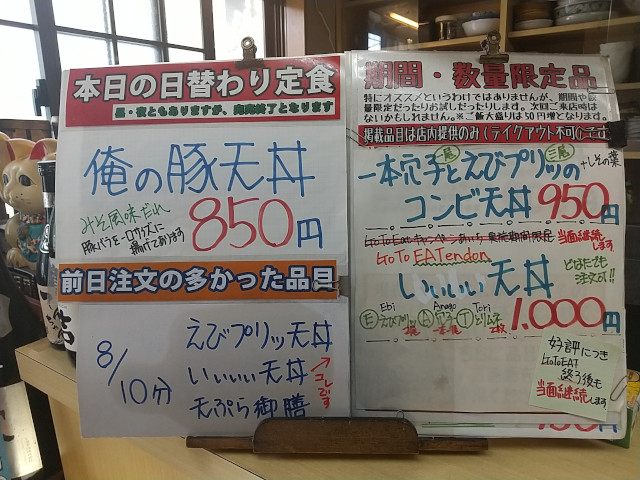 本日の日替わり定食
昼・夜ともありますが、売切終了となります
俺の豚天丼
みそ風味だれ
豚バラとロースを揚げてあります
850円
前日注文の多かった品目
8/10分
えびプリッ天丼
いぃぃぃ天丼
天ぷら御膳
コレです
期間・数量限定品
特にオススメというわけではありませんが、期間や数
量限定だったりお試しだったりします。次回ご来店時は
ないかもしれません。※ご飯大盛りは50円増となります。
掲載品目は店内提供のみ(テイクアウト不可)です
一本穴子とえびプリッの
一尾
三尾
+しその葉
コンビ天丼 950円
GoToEatキャンペーンあいち 実施期間限定
当面継続します
GoTo EATendon
いぃぃぃ天丼
どなたでも
注文可!!
Ebi Anago Tori
Ⓔえびプリッ Ⓐ穴子 Ⓣとりム子
2枚
1,000円
好評につき
GoToEAT
終了後も
当面継続します